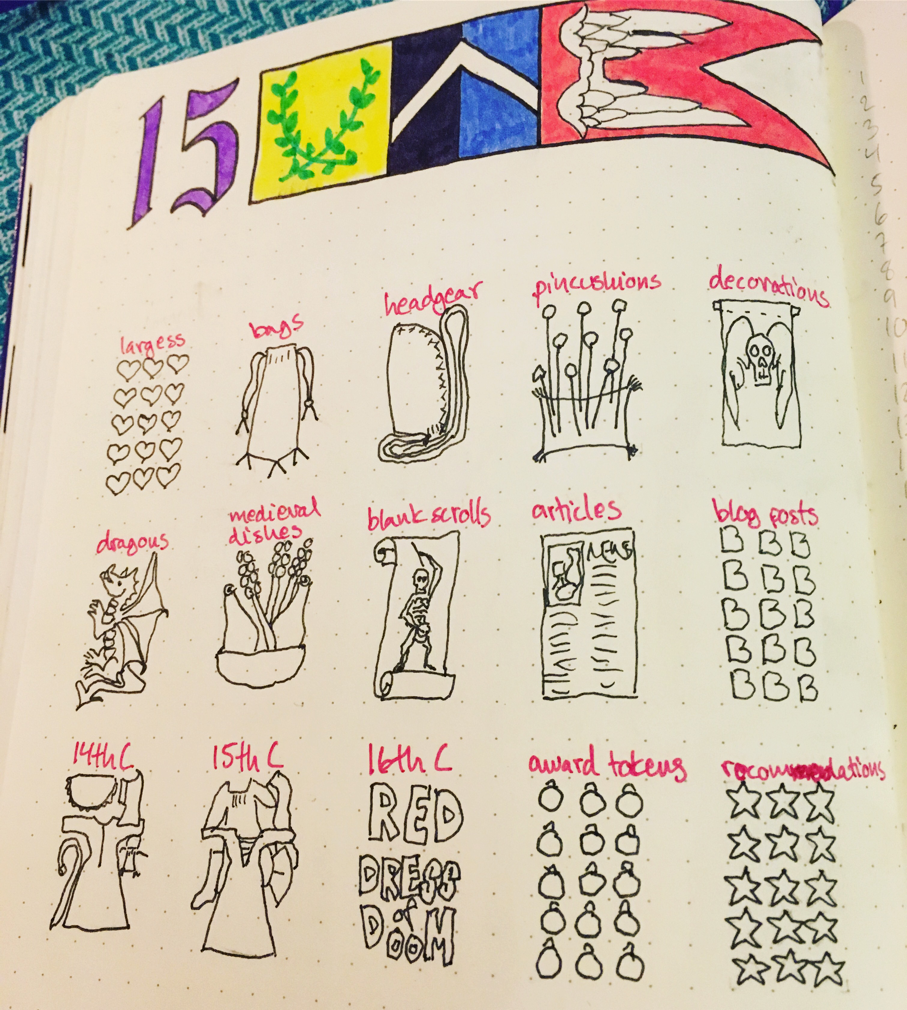 15
largess
bags
headgear
pincushions
decorations
dragons
medieval
dishes
blank scrolls
articles
NEWS
blog posts
B B B
B B B
B B B
B B B
B B B
14th C
15th C
16th C
RED
DRESS
of
DOOM
award tokens
recommendations
1
2
3
4
5
6
7
8
9
10